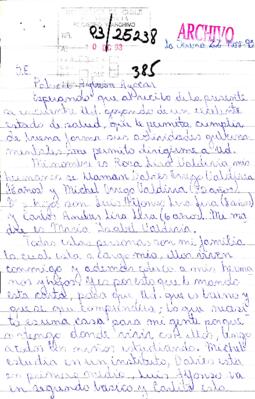 ARCHIVO
No. 93/25238
DIC 93
La Serena 22
385
S.E.
Patricio Aylwin Azócar
Esperando que al recibo de la presente
se encuentre Ud. gozando de un excelente
estado de salud, que le permita cumplir
de buena forma sus actividades guberna
mentales. Me permito dirigirme a Ud.
Mi nombre es Rosa Lira Valdivia mis
hermanos se llaman Orrego Valdivia
y Michel Orrego Valdivia
hijos son Luis Alfonso Lira Lira
y Carlos Lira Lira (6 años). Mi ma
dre es María Isabel Valdivia.
Todas estas personas son mi familia
la cual está a cargo mío, ellos viven
conmigo y además educo a mis herma
nos y hijos. Yes por esto que le mando
esta carta, para que Ud. que es bueno y
que se que comprendera; lo que necesi
to es una casa para mi gente porque
no tengo donde vivir con ellos, tengo
a todos los niños estudiando. Michel
estudia en un instituto, está
en primero medio, Luis Alfonso va
en segundo basico y Carlitos está